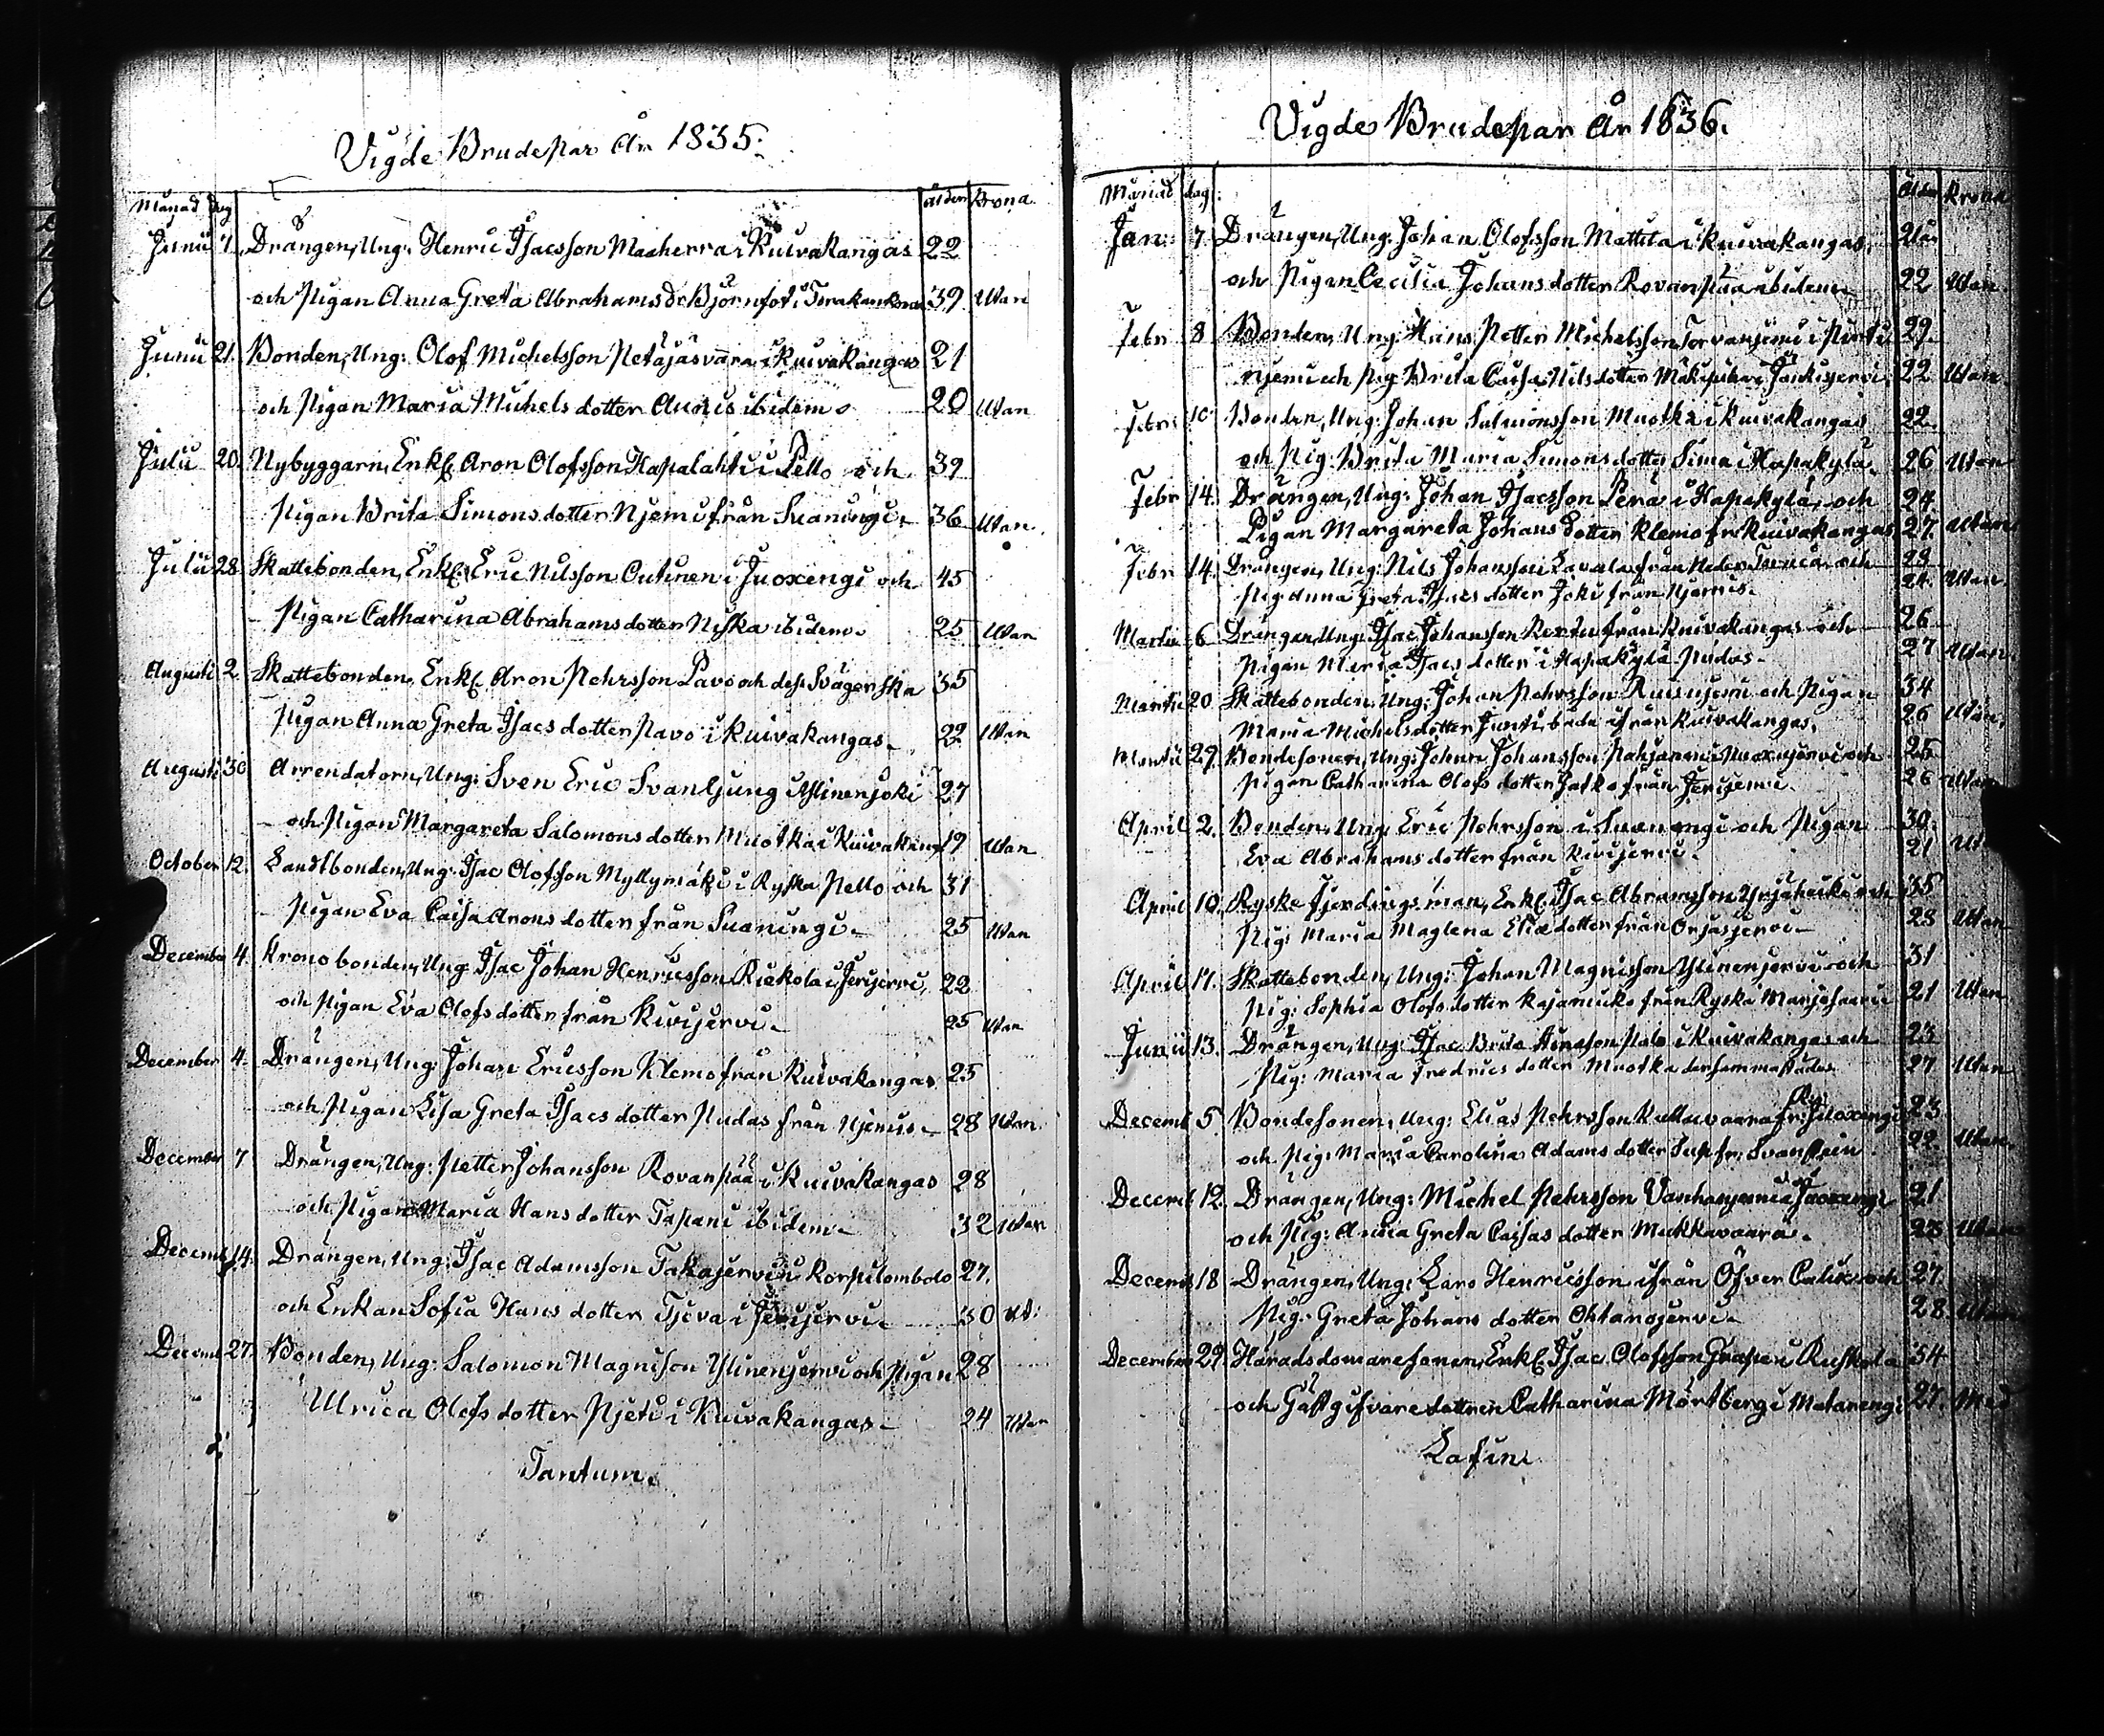 Vigde Brudepar År 1835.
Månad dag ålder Krona
Junii 7. Drängen, Ung: Henric Isacsson Maaherra i Kuivakangas 22
och Pigan Anna Greta Abrahams Dr Björnfot i 39 Utan
Junii 21. Bonden, Ung: Olof Michelsson Petäjäsvara i Kuivakangas 21
och Pigan Maria Michels dotter Aunis ibidem 20 Utan
Julii 20. Nybyggarn, Enkl. Aron Olofsson Hapalahti i Pello och 39
Pigan Brita Simons dotter Njemi från Svaningi. 36 Utan
Julii 28. Skattebonden, Enkl. Eric Nilsson Outinen i Juoxengi och 45
Pigan Catharina Abrahams dotter Niska ibidem. 25 Utan
Augusti 2. Skattebonden, Enkl. Aron Pehrsson Pavo och dess Svägerska 35
Pigan Anna Greta Isacs dotter Pavo i Kuivakangas. 22 Utan
Augusti 30. Arrendatorn, Ung: Sven Eric Svanljung Ylinenjoki 27
och Pigan Margareta Salomons dotter Muotka i Kuivakang. 19 Utan
October 12. Landtbonden, Ung: Isac Olofsson Myllymäki i Ryska Pello och 31
Pigan Eva Caisa Arons dotter från Svaningi. 25 Utan
December 4. Kronobonden, Ung: Isac Johan Henricsson Rickola i Jerijervi, 22
och Pigan Eva Olofs dotter från Kivijervi. 25 Utan
December 4. Drängen, Ung: Johan Ericsson Klemo från Kuivakangas 25
och Pigan Lisa Greta Isacs dotter Pudas från Njemis. 28 Utan.
December 7 Drängen, Ung: Petter Johansson Rovanpää i Kuivakangas 28
och Pigan Maria Hans dotter Tapani ibidem. 32 Utan
Decemb. 14. Drängen, Ung: Isac Adamsson Takajervi i Korpilombolo 27.
och Enkan Sofia Hans dotter Tjeva i Jerijervi. 30 Ut:
Decemb 27. Bonden, Ung: Salomon Magnison Ylinenjervi och Pigan 28
Ulrica Olofs dotter Njeti i Kuivakangas. 24 Utan
Tantum.
Vigde Brudepar År 1836.
Månad dag. Ålder Krona
Jan: 7. Drängen, Ung: Johan Olofsson Mattila i Kuivakangas,
och Pigan Cecilia Johans dotter Rovanpää ibidem. 22 Utan
Febr 8 Bonden, Ung: Hans Petter Michelsson i 29.
njemi och Pig: Brita Caisa Nils dotter 22 Utan
Febr: 10 Bonden, Ung: Johan Salmonsson Muotka i Kuivakangas 22.
och Pig: Brita Maria Simons dotter Sima i Hapakylä. 26 Utan
Febr 14. Drängen, Ung: Johan Isacsson Perä i Hapakylä, och 24.
Pigan Margareta Johans Dotter Klemo fr. Kuivakangas 27. Utan
Febr 14. Drängen, Ung: Nils Johansson Lavala från Neder Tornea och 23
Pig: Anna Greta Isacs dotter Joki från Njemis. 24. Utan
Martii 6 Drängen, Ung: Isac Johansson från Kuivakangas och 26
Pigan Maria Isacs dotter i Hapakylä Pudas. 27 Utan
Martii 20. Skattebonden, Ung: Johan Pehrsson och Pigan 34
Maria Michels dotter Junti, bada ifrån Kuivakangas. 26 Utan
Martii 29. Bondesonen, Ung: Johan Johansson och 25
Pigan Catharina Olofs dotter Jatko från 26 Utan
April 2. Bonden, Ung: Eric Pehrsson i Svanengi och Pigan 30.
Eva Abrahams dotter från Kivijervi. 21
April 10. Ryske Fjerdingsman, Enkl. Isac Abramsson och 35
Pig: Maria Maglena Elias dotter från Orjasjervi. 28 Utan
April 17. Skattebonden, Ung: Johan Magnisson Ylinenjervi och 31
Pig: Sophia Olofs dotter från Ryska Marjosaari 21 Utan
Junii 13. Drängen, Ung: Isac Brita Palo i Kuivakangas och 23
Pig: Maria Fredrics dotter Muotka dersammastädes. 27 Utan
Decemb 5. Bondesonen, Ung: Elias Pehrsson Kuttuvaara fr: Ry: Juoxengi 23
och Pig: Maria Carolina Adams dotter fr: Svanstein 22. Utan
Decemb 12. Drängen, Ung: Michel Pehrsson i Juoxengi 21
och Pig: Anna Greta Caisas dotter Mukkavaara. 23 Utan
Decemb 18 Drängen, Ung: Lars Henricsson ifrån Öfver Calix och 27.
Pig: Greta Johans dotter Oktanojervi. 28. Utan
December 29. Häradsdomaresonen, Enkl. Isac Olofsson Grape i Ruskola 34
och Gästgifvaredottren Catharina Mörtberg i Matarengi 27. Med
Lafin.